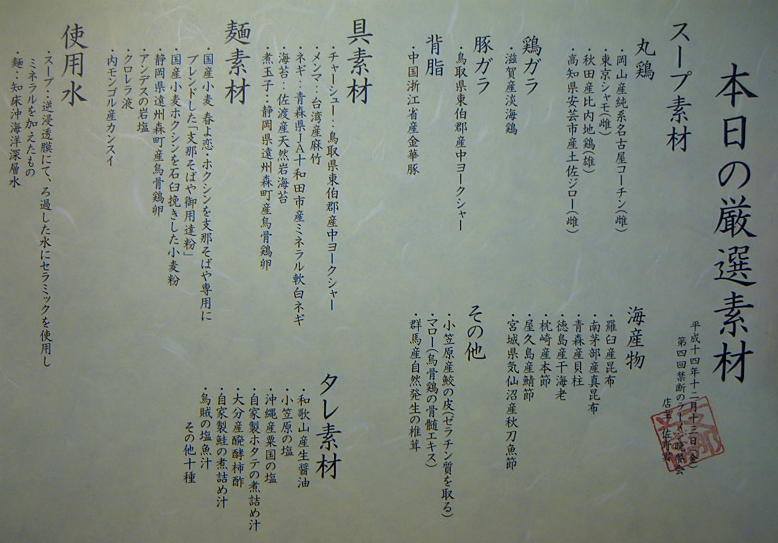 本日の厳選素材
平成十四年十二月十三日(金)
第四回禁断のラーメン晩餐会
店主 佐野實
スープ素材
丸鶏
・岡山産純系名古屋コーチン(雌)
・東京・シャモ(雌)
・秋田産比内地鶏(雄)
・高知県安芸市産土佐ジロー(雌)
鶏ガラ
・滋賀産淡海鶏
豚ガラ
・鳥取県東伯郡産中ヨークシャー
背脂
・中国浙江省産金華豚
海産物
・羅臼産昆布
・南茅部産真昆布
・青森産貝柱
・徳島産干海老
・枕崎産本節
・屋久島産鯖節
・宮城県気仙沼産秋刀魚節
その他
・小笠原産鮫の皮(ゼラチン質を取る)
・マロー(烏骨鶏の骨髄エキス)
・群馬産自然発生の椎茸
具素材
・チャーシュー:鳥取県東伯郡産中ヨークシャー
・メンマ:台湾産麻竹
・ネギ:青森県JA十和田市産ミネラル軟白ネギ
・海苔:佐渡産天然岩海苔
・煮玉子:静岡県遠州森町産烏骨鶏卵
麺素材
・国産小麦 春よ恋・ホクシンを支那そばや専用に
ブレンドした「支那そばや御用達粉」
・国産小麦ホクシンを石臼挽きした小麦粉
・静岡県遠州森町産烏骨鶏卵
・アンデスの岩塩
・クロレラ液
・内モンゴル産カンスイ
タレ素材
・和歌山産生醤油
・小笠原の塩
・沖縄産粟国の塩
・自家製ホタテの煮詰め汁
・大分産醗酵柿酢
・自家製鮭の煮詰め汁
・烏賊の塩魚汁
その他十種
使用水
・スープ:逆浸透膜にて、ろ過した水にセラミックを使用し
ミネラルを加えたもの
・麺:知床沖海洋深層水